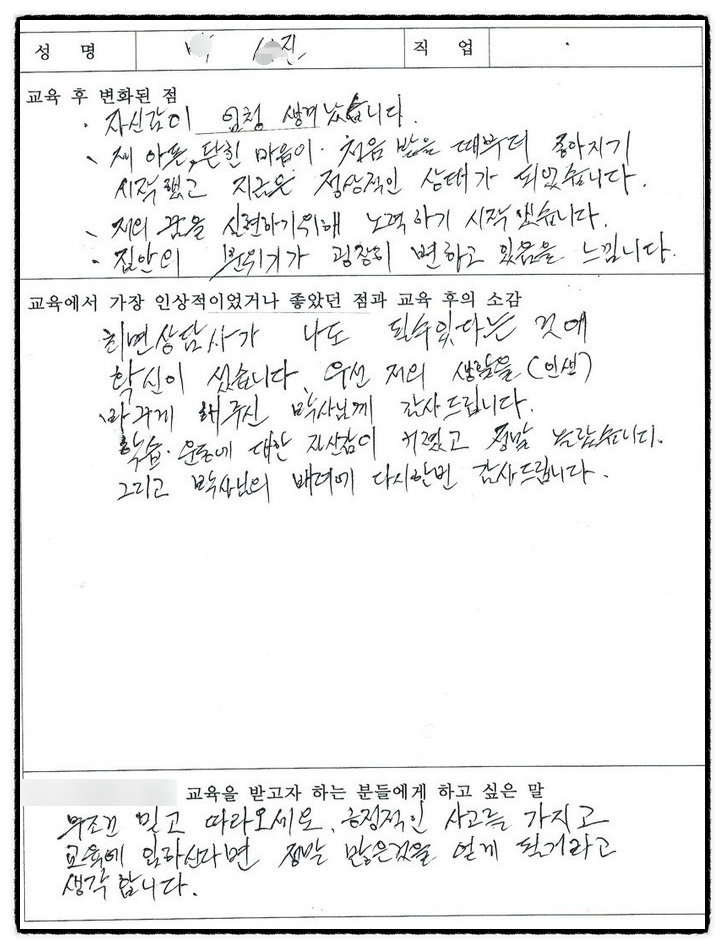 성 명 진 직 업
교육 후 변화된 점
· 자신감이 엄청 생겨났습니다.
、제 아픈, 닫힌 마음이 처음 받을 때부터 좋아지기
시작했고 지금은 정상적인 상태가 되었습니다.
、저의 꿈을 실현하기위해 노력하기 시작했습니다.
· 집안의 분위기가 굉장히 변하고 있음을 느낍니다.
교육에서 가장 인상적이었거나 좋았던 점과 교육 후의 소감
최면상담사가 나도 될수있다는 것에
확신이 섰습니다. 우선 저의 생활을 (인생)
바꾸게 해주신 박사님께 감사드립니다.
학습·운동에 대한 자신감이 커졌고 정말 놀랐습니다.
그리고 박사님의 배려에 다시한번 감사드립니다.
교육을 받고자 하는 분들에게 하고 싶은 말
무조건 믿고 따라오세요. 긍정적인 사고를 가지고
교육에 임하신다면 정말 많은것을 얻게 될거라고
생각합니다.